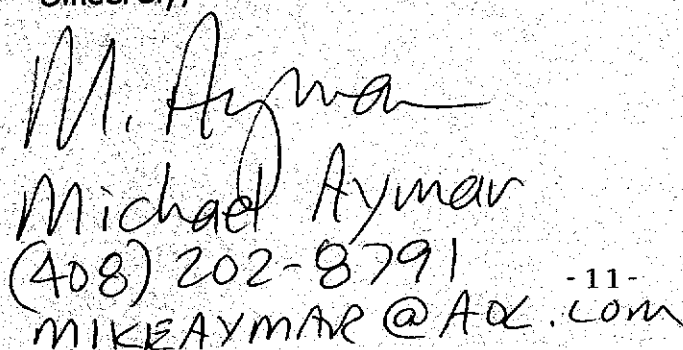 Sincerely,
M. Aymar
Michael Aymar
(408) 202-8791
-11-
MIKEAYMAR@AOL.com